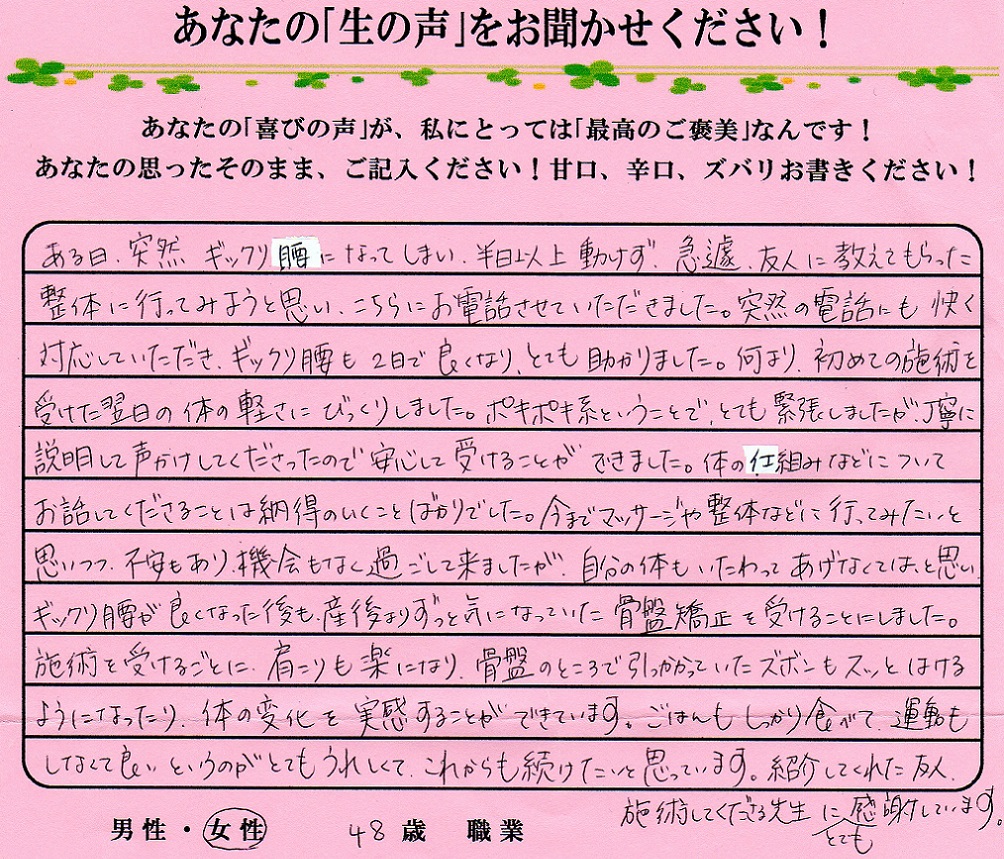 あなたの「生の声」をお聞かせください！
あなたの「喜びの声」が、私にとっては「最高のご褒美」なんです！
あなたの思ったそのまま、ご記入ください！甘口、辛口、ズバリお書きください！
ある日、突然 ギックリ腰になってしまい、半日以上動けず、急遽、友人に教えてもらった
整体に行ってみようと思い、こちらにお電話させていただきました。突然の電話にも快く
対応していただき、ギックリ腰も2日で良くなり、とても助かりました。何より、初めての施術を
受けた翌日の体の軽さにびっくりしました。ポキポキ系ということで、とても緊張しましたが、丁寧に
説明して声かけしてくださったので安心して受けることができました。体の仕組みなどについて
お話してくださることは納得のいくことばかりでした。今までマッサージや整体などに行ってみたいと
思いつつ、不安もあり、機会もなく過ごして来ましたが、自分の体もいたわってあげなくては、と思い
ギックリ腰が良くなった後も、産後よりずっと気になっていた骨盤矯正を受けることにしました。
施術を受けるごとに、肩こりも楽になり、骨盤のところで引っかかっていたズボンもスッとはける
ようになったり、体の変化を実感することができています。ごはんもしっかり食べて、運動も
しなくて良いというのがとてもうれしくて、これからも続けたいと思っています。紹介してくれた友人、
施術してくださる先生にとても感謝しています。
男性・女性 48歳 職業